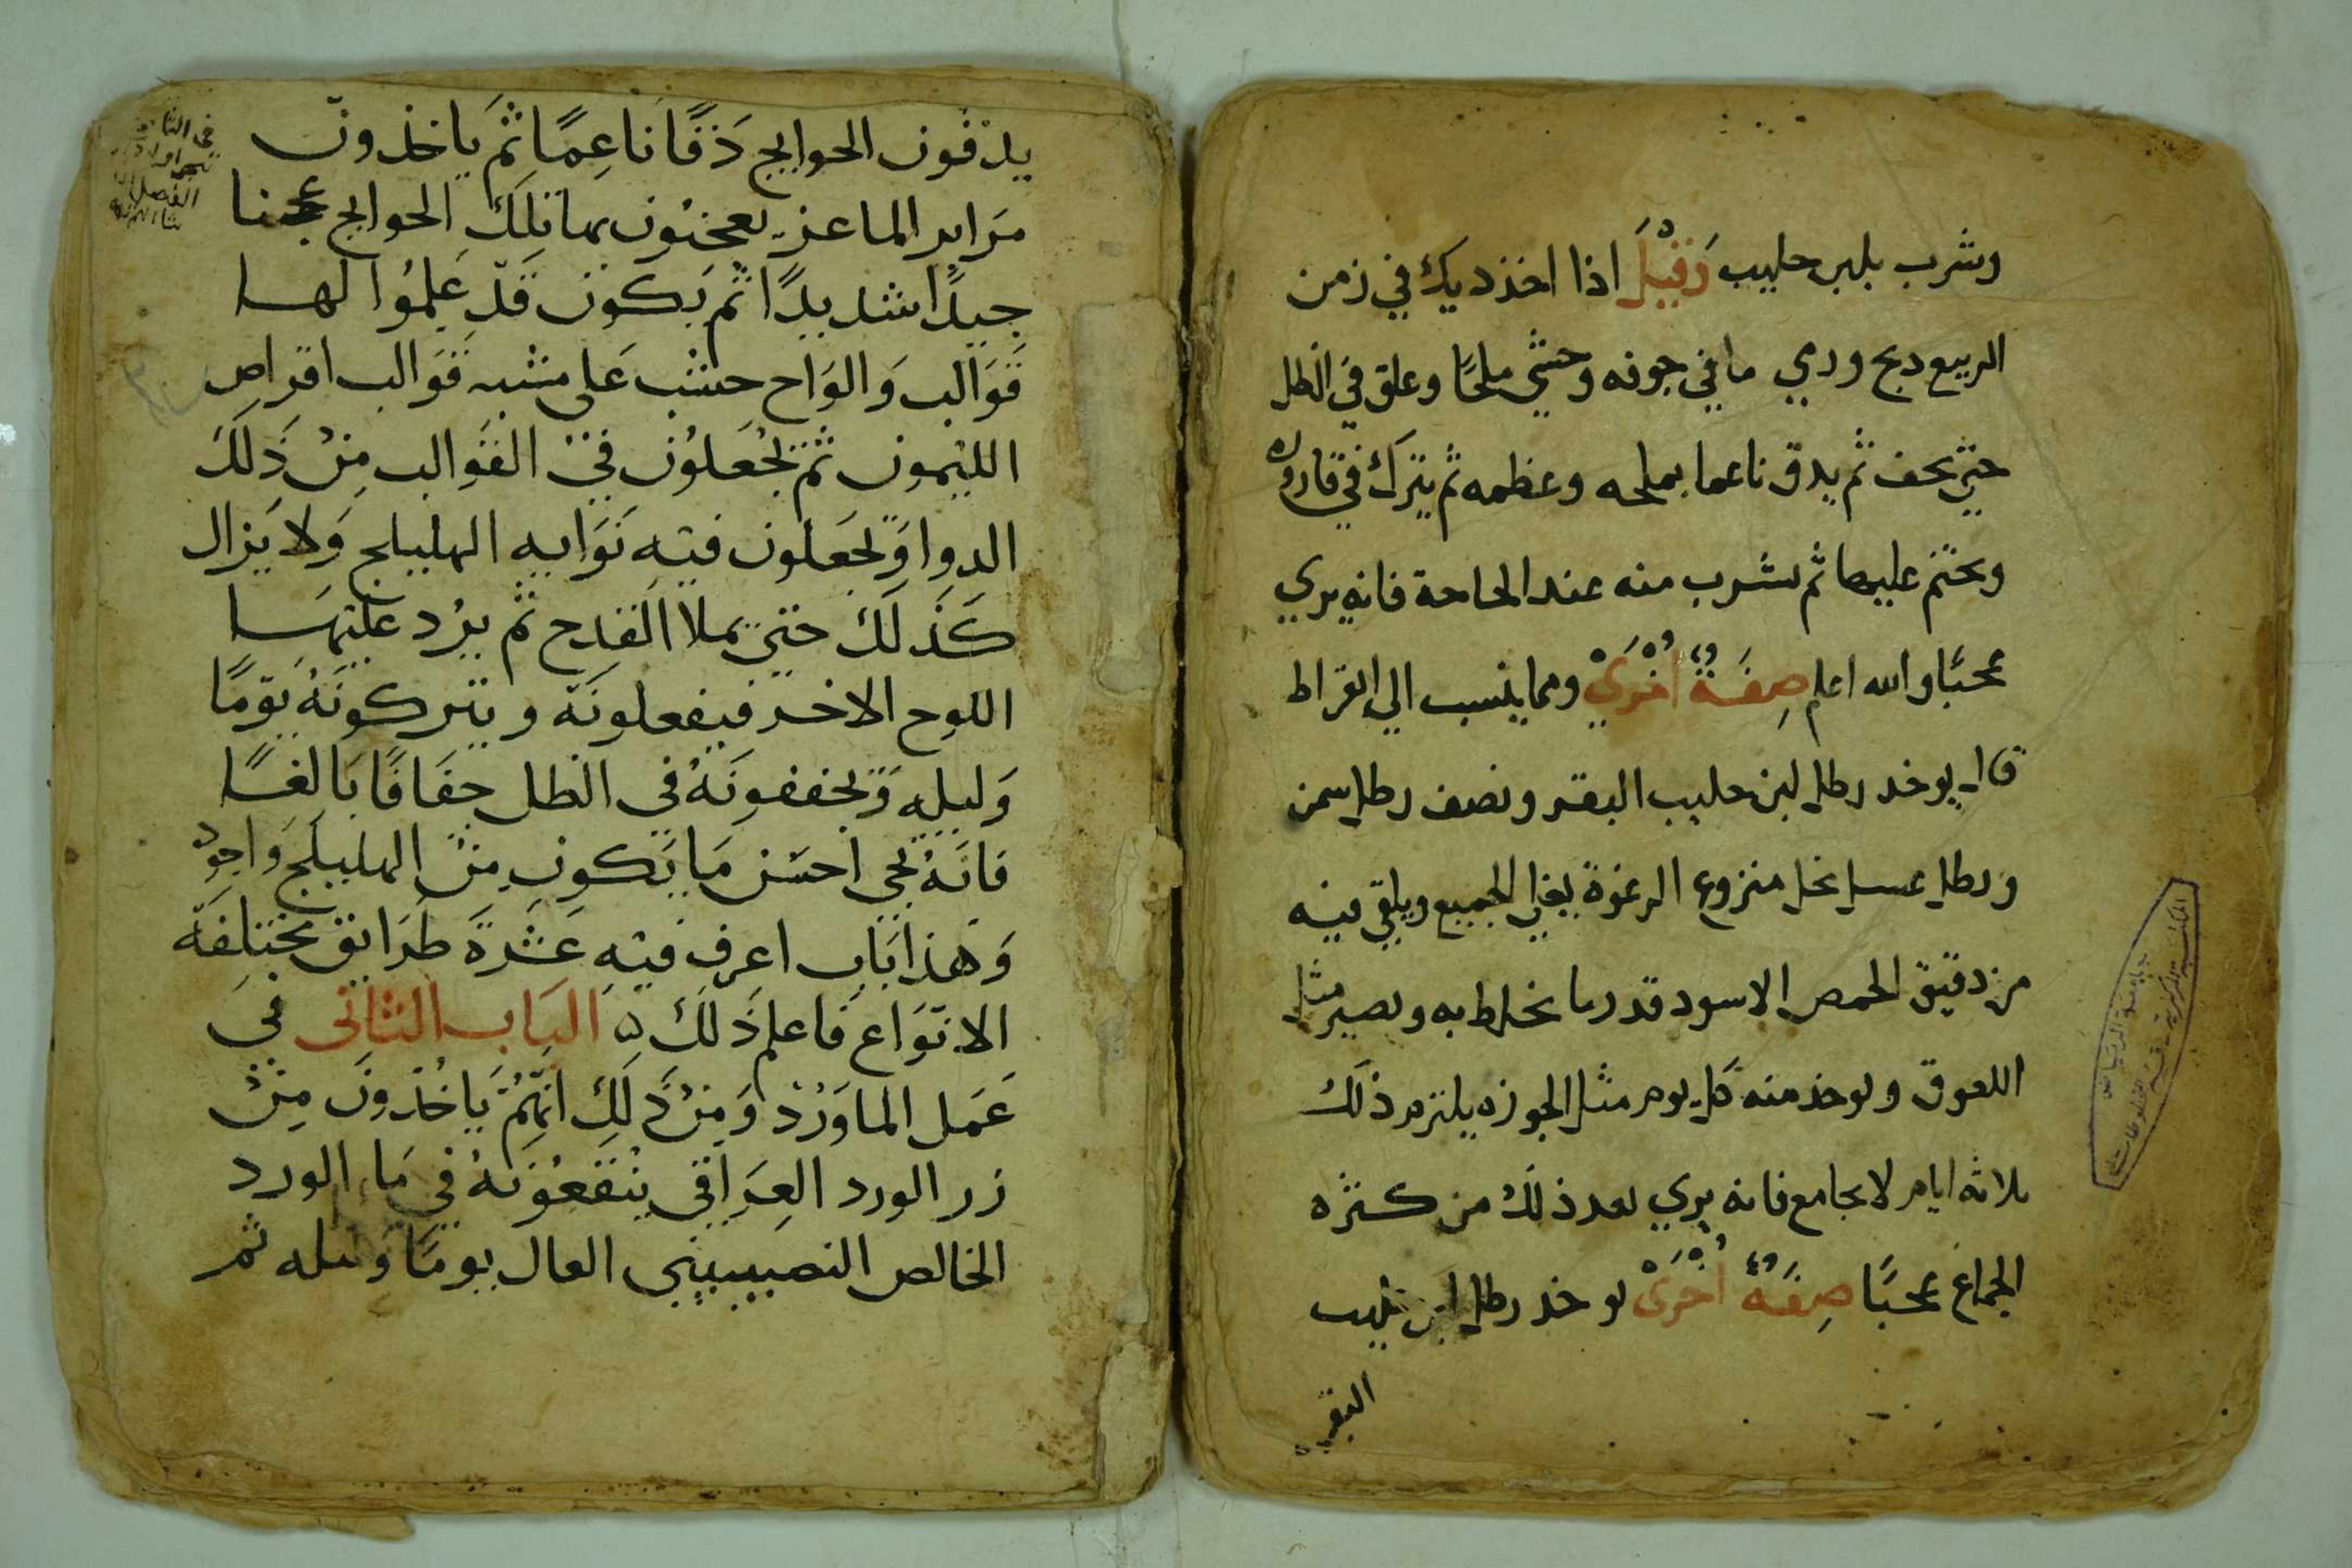 وشرب بلبن حليب وقيل اذا اخذ ديك في زمن
الربيع دبح ورمي ما في جوفه وحشي ملحًا وعلق في الظل
حتي يجف ثم يدق ناعما بملحه وعظمه ثم يترك في قاروره
ويختم عليها ثم يشرب منه عند الحاجة فانه يري
عجبًا والله اعلم صِفَةٌ أُخْرَيْ ومما ينسب الي القراط
قال يوخد رطل لبن حليب البقر ونصف رطل سمن
ورطل عسل نحل منزوع الرغوة يغلي الجميع ويلقي فيه
من دقيق الحمص الاسود قدر ما يخلط به ويصير مثل
اللعوق ويوخذ منه كل يوم مثل الجوزه يلتزم ذلك
ثلاثه ايام لا يجامع فانه يري بعد ذلك من كثره
الجماع عجبًا صِفَةٌ أُخْرَىْ يوخد رطل لبن حليب
البقر
يدقون الحوايج دَقًا نَاعِمًا ثمَ يَاخذونَ
مَراير الماعز يعجنُون بها تلِكَ الحوايج عجنا
جيدًا شديدًا ثم يَكون قَد عَلِمُوا لها
قَوَالب وَالوَاح خشب عَلى شبه قوَالب اقراص
الليْمون ثم يَجْعَلوُن فيْ القَوالب مِنْ ذَلَك
الدوا وَيجعَلون فيَه نَوَايه الهليلج وَلا يَزال
كَذَلَك حَتي يملا القدح ثم يرُد عليْهَا
اللوح الاخر فيفعلونَه ويتركونَهُ يَومًا
وَليله وَيجففونَهُ في الظل جفَافًا بَالغًا
فانَهُ يجي احسَن مَا يَكون مِنْ الهليلَج وَاجود
وَهذا بَاب اعرف فيَه عَشَرةَ طَرَايق مختلِفَه
الانوَاع فَاعلم ذَلَك ه البَاب الثانى في
عَمَل الماوَرْد وَمِنْ ذَلِكَ انَهُمْ يَاخُذونَ مِنْ
زر الورد العِرَاقي ينْقعُونَهُ في مَا الورد
الخالص النصيبيني العال يومًا وليله ثم